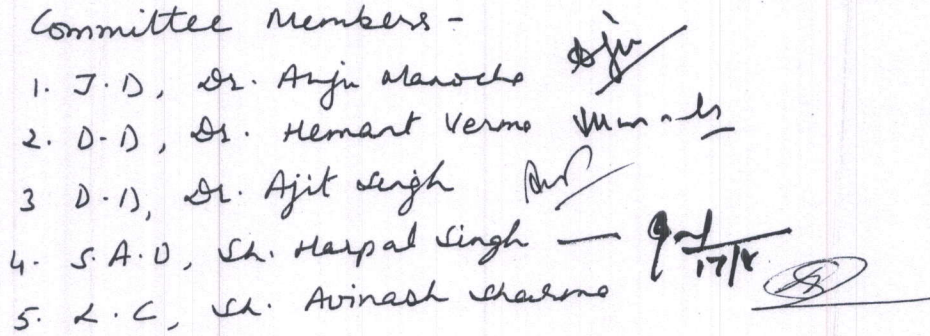 Committee Members -
1. J.D, Dr. Anju Manocha
2. D.D, Dr. Hemant Verma
3 D.D, Dr. Ajit Singh
4. S.A.O, Sh. Harpal Singh — 17/8
5. L.C, Sh. Avinash Sharma